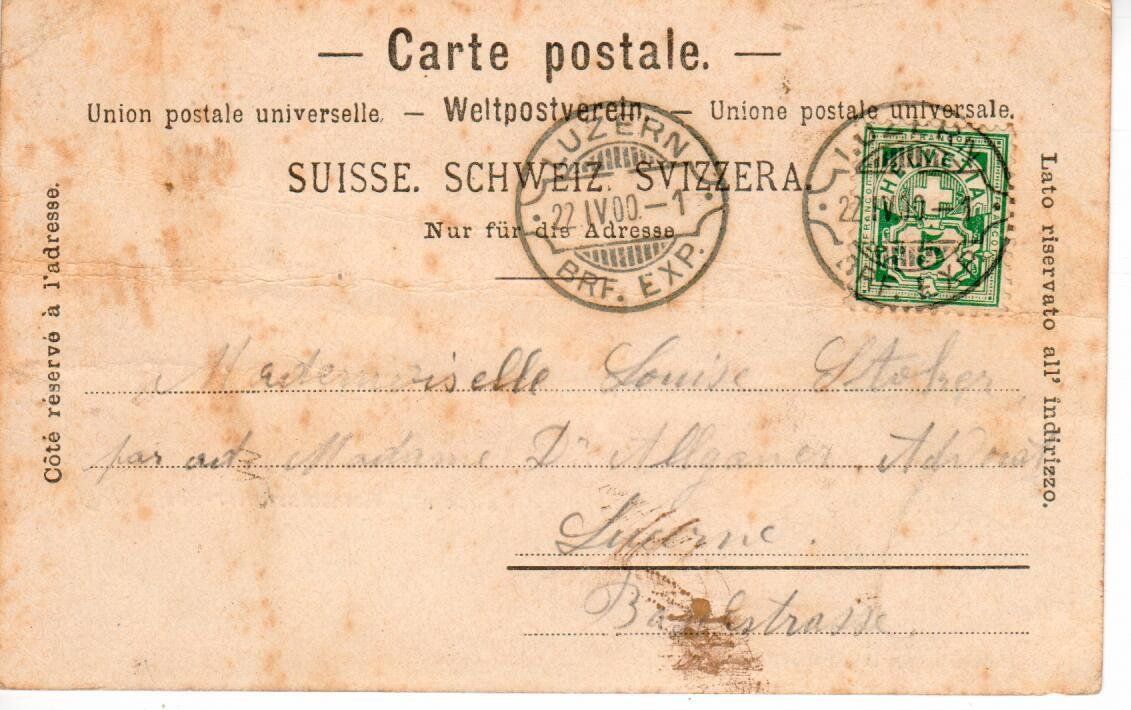 — Carte postale. —
Union postale universelle. — Weltpostverein. — Unione postale universale.
SUISSE. SCHWEIZ. SVIZZERA.
Nur für die Adresse
Côté réservé à l'adresse.
Lato riservato all' indirizzo.
LUZERN
22.IV.00.–1
BRF. EXP.
LUZERN
22.IV.00.–1
BRF. EXP.
FRANCO
HELVETIA
5
Mademoiselle Louise
par Madame Dr
Lucerne.